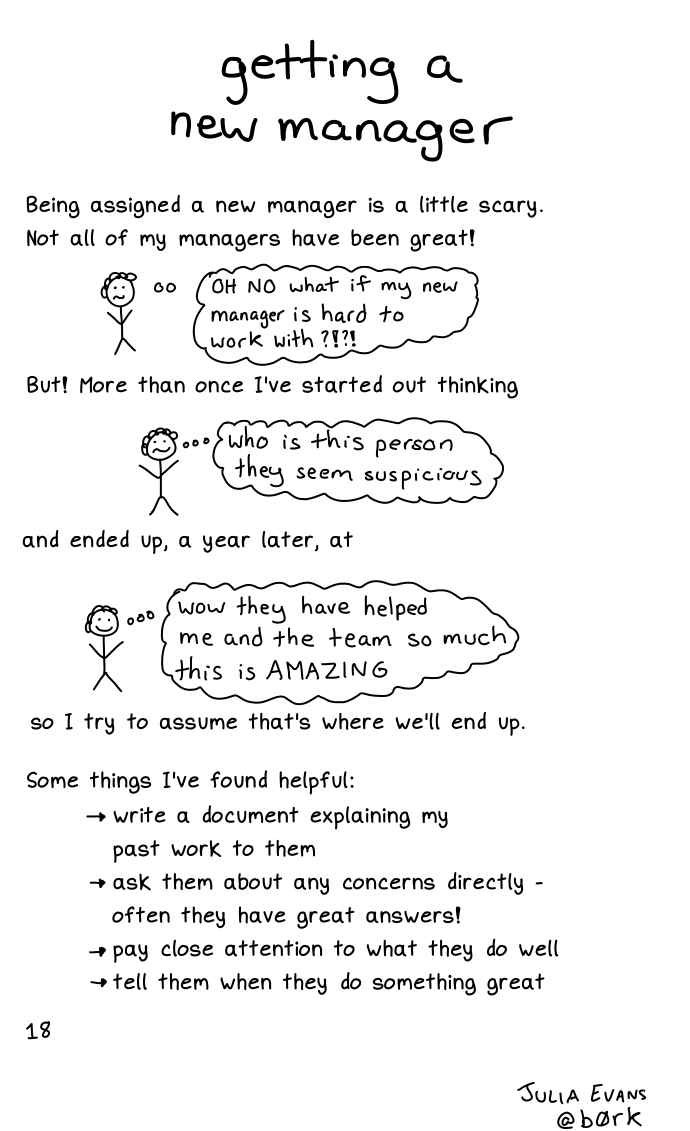 getting a
new manager
Being assigned a new manager is a little scary.
Not all of my managers have been great!
OH NO what if my new
manager is hard to
work with ?!?!
But! More than once I've started out thinking
who is this person
they seem suspicious
and ended up, a year later, at
wow they have helped
me and the team so much
this is AMAZING
so I try to assume that's where we'll end up.
Some things I've found helpful:
→ write a document explaining my
past work to them
→ ask them about any concerns directly -
often they have great answers!
→ pay close attention to what they do well
→ tell them when they do something great
18
JULIA EVANS
@bØrk